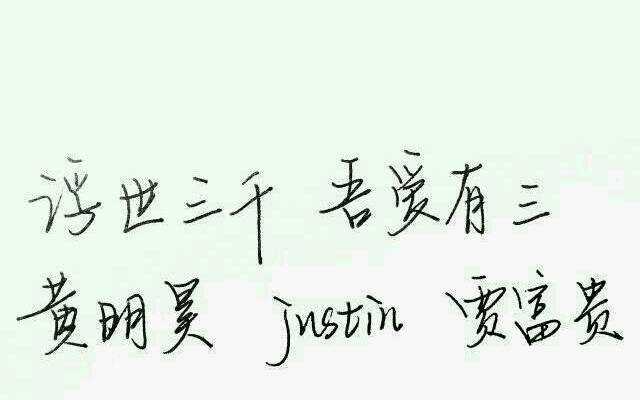 浮世三千 吾爱有三
黄明昊 justin 贾富贵